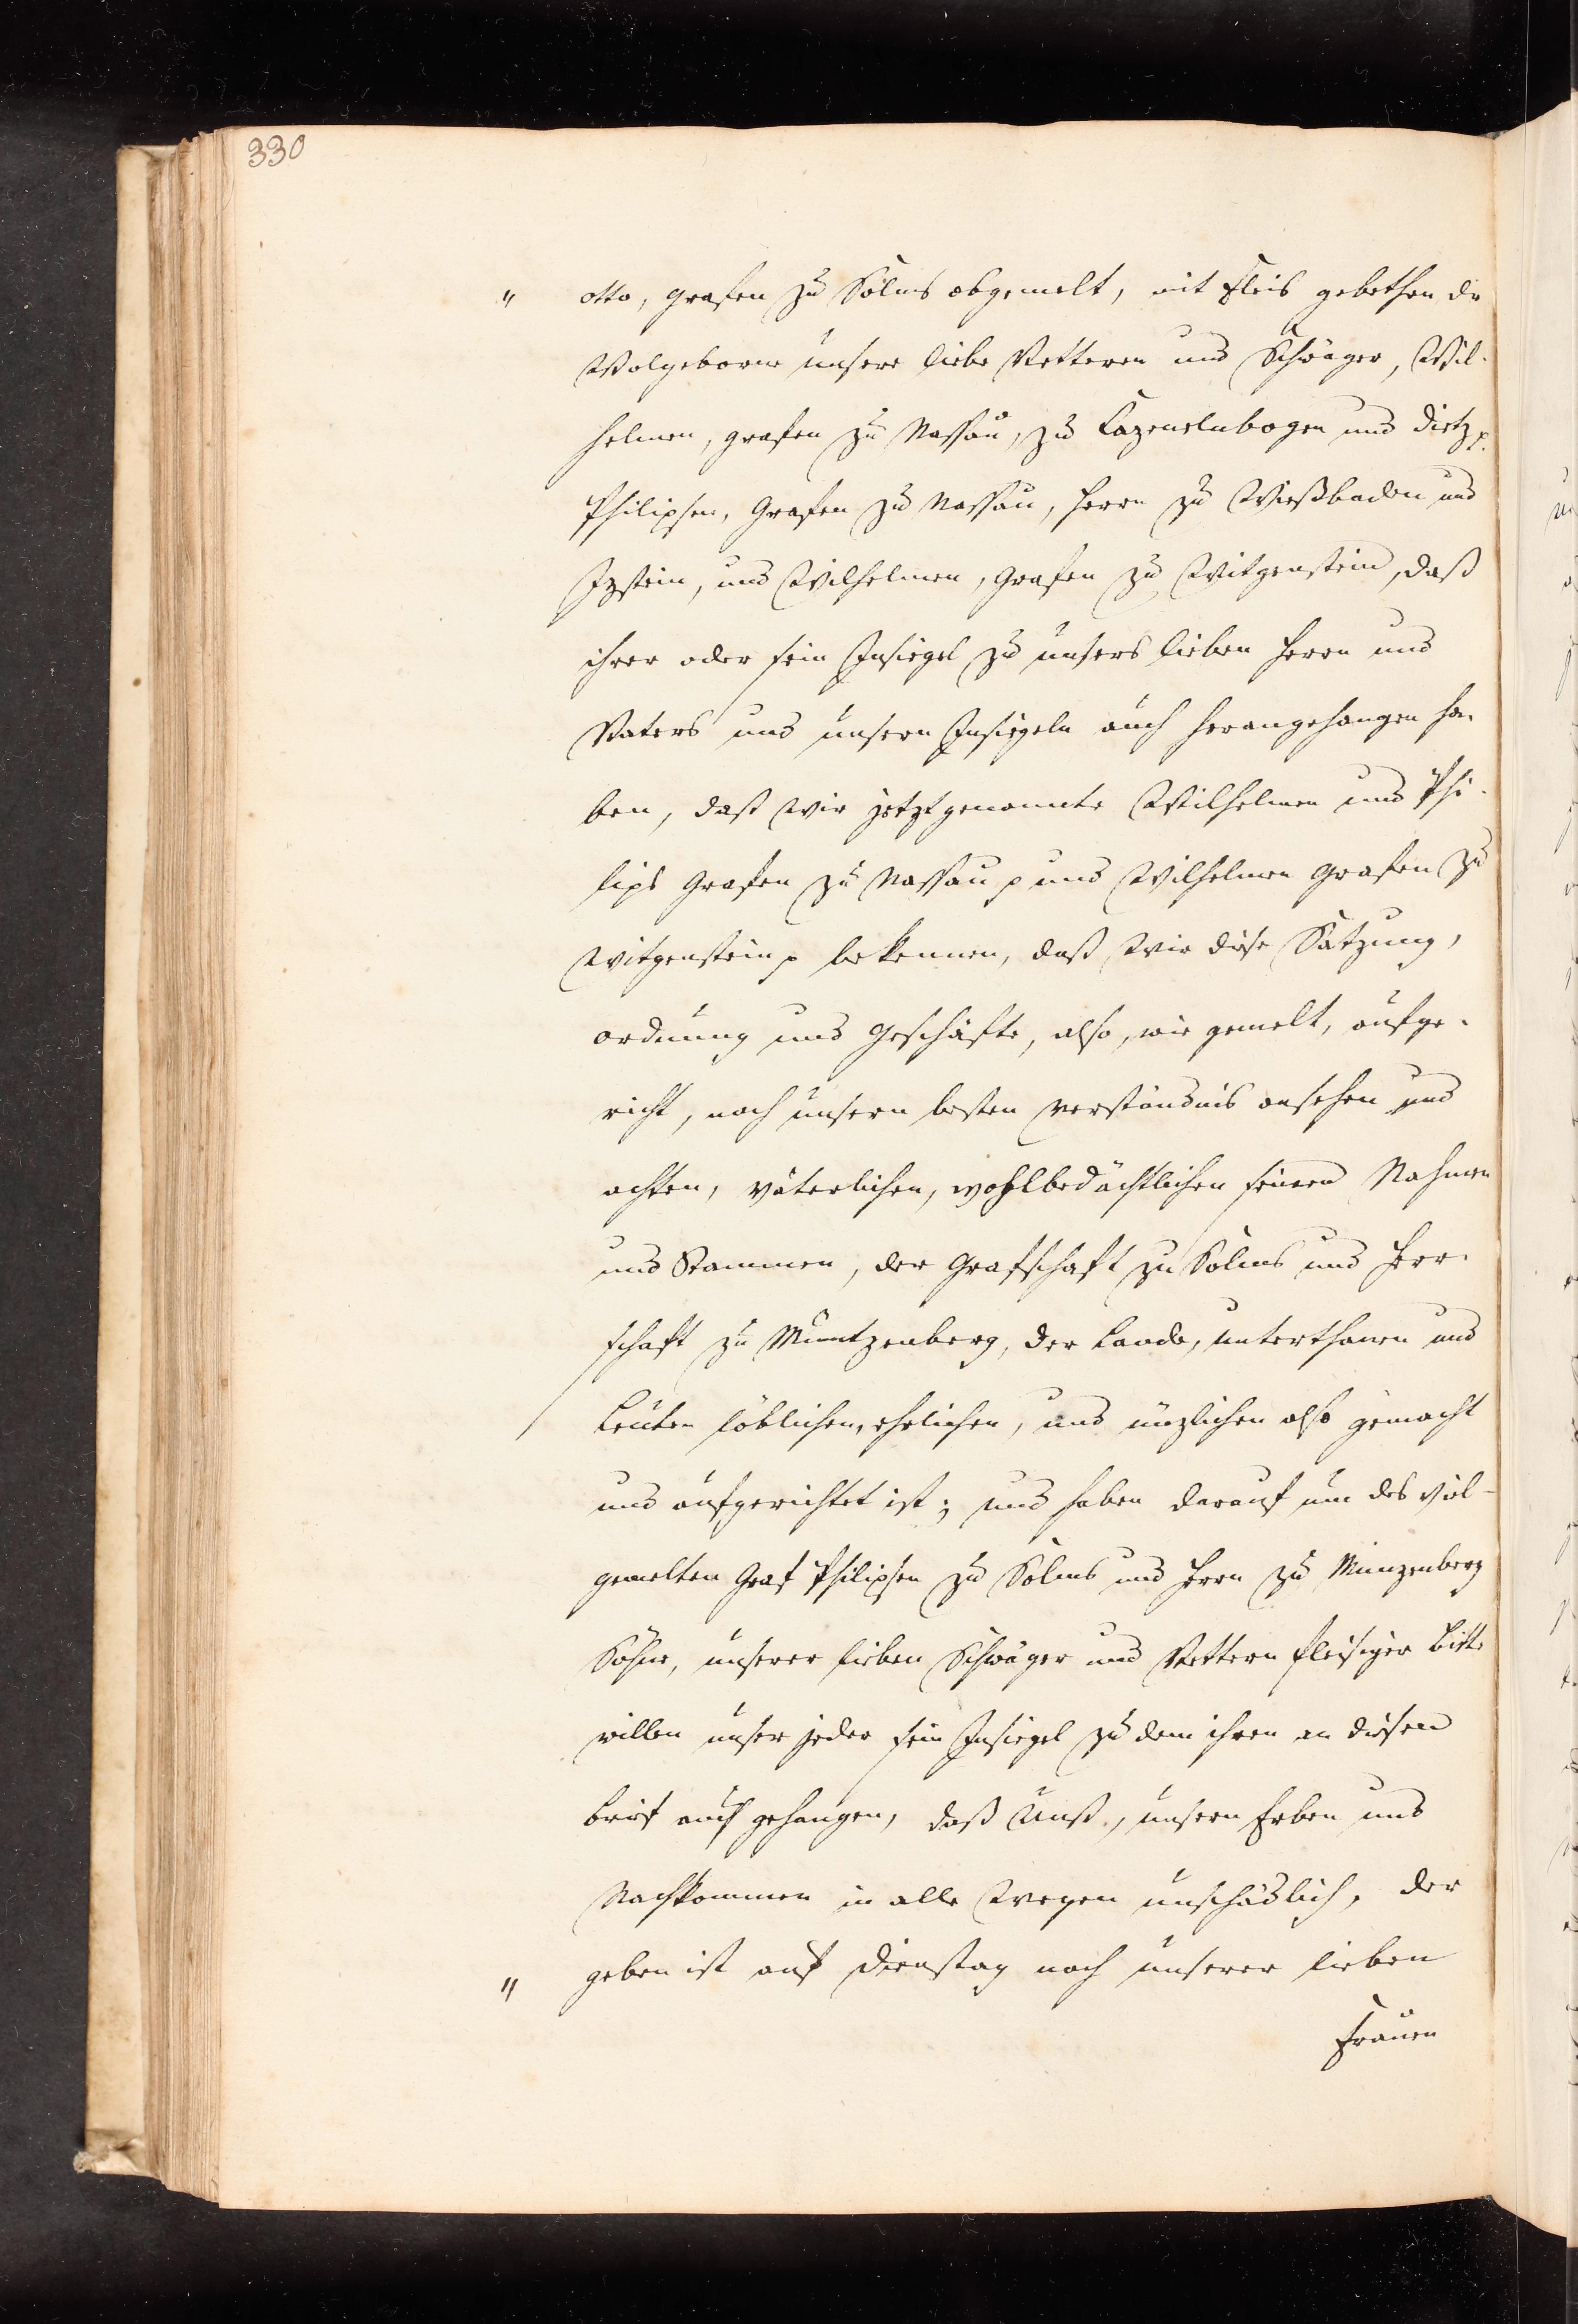 330
" otto, grafen zu Solms obgemelt, mit fleis gebethen die
Wolgeborne unsere liebe Vetteren und Schwäger, Wil-
helmen, grafen zu Nassau, zu Cazenelnbogen und Dietz p.
Philipsen, Grafen zu Nassau, Herrn zu Wießbaden und
Izstein, und Wilhelmen, Grafen zu Witgenstein, daß
ihrer oder sein Insiegel zu unsers lieben Herrn und
Vaters und unsern Insiegeln auch herangehangen ha-
ben, daß Wir jetztgenannte Wilhelmen und Phi-
lips Grafen zu Nassau p und Wilhelmen Grafen zu
Witgenstein p bekennen, daß Wir diese Satzung,
ordnung und Geschäfte, also, wie gemelt, aufge-
richt, nach unsern besten verständnis ansehen und
achten, väterlichen, wohlbedächtlichen seinem Nahmen
und Stammen, der Grafschaft zu Solms und Herr-
schaft zu Muntzenberg, der Lande, unterthanen und
Leuten löblichen, ehrlichen, und nüzlichen also gemacht
und aufgerichtet ist; und haben darauf um des viel-
gemelten Graf Philipsen zu Solms und Herrn zu Münzenberg
Söhne, unserer lieben Schwäger und Vettern fleisiger bitte
willen unser jeder sein Insiegel zu dem ihren an diesem
brief auch gehangen, daß Unß, unsern Erben und
Nachkommen in alle Wegen unschädlich, der
" geben ist auf Dienstag nach unserer lieben
Frauen